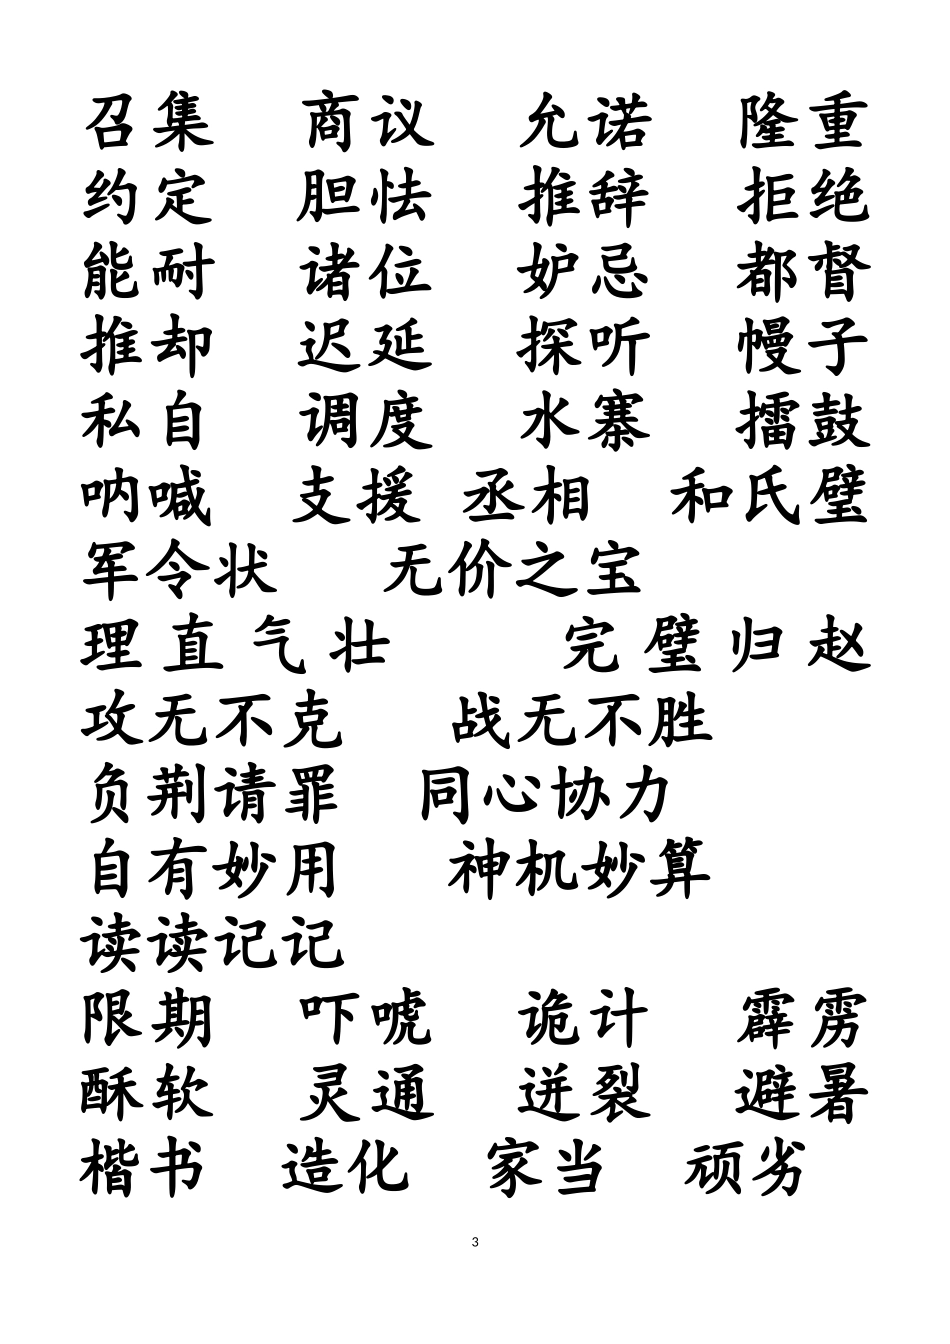 召集 商议 允诺 隆重
约定 胆怯 推辞 拒绝
能耐 诸位 妒忌 都督
推却 迟延 探听 幔子
私自 调度 水寨 擂鼓
呐喊 支援 丞相 和氏璧
军令状 无价之宝
理直气壮 完璧归赵
攻无不克 战无不胜
负荆请罪 同心协力
自有妙用 神机妙算
读读记记
限期 吓唬 诡计 霹雳
酥软 灵通 迸裂 避暑
楷书 造化 家当 顽劣
3